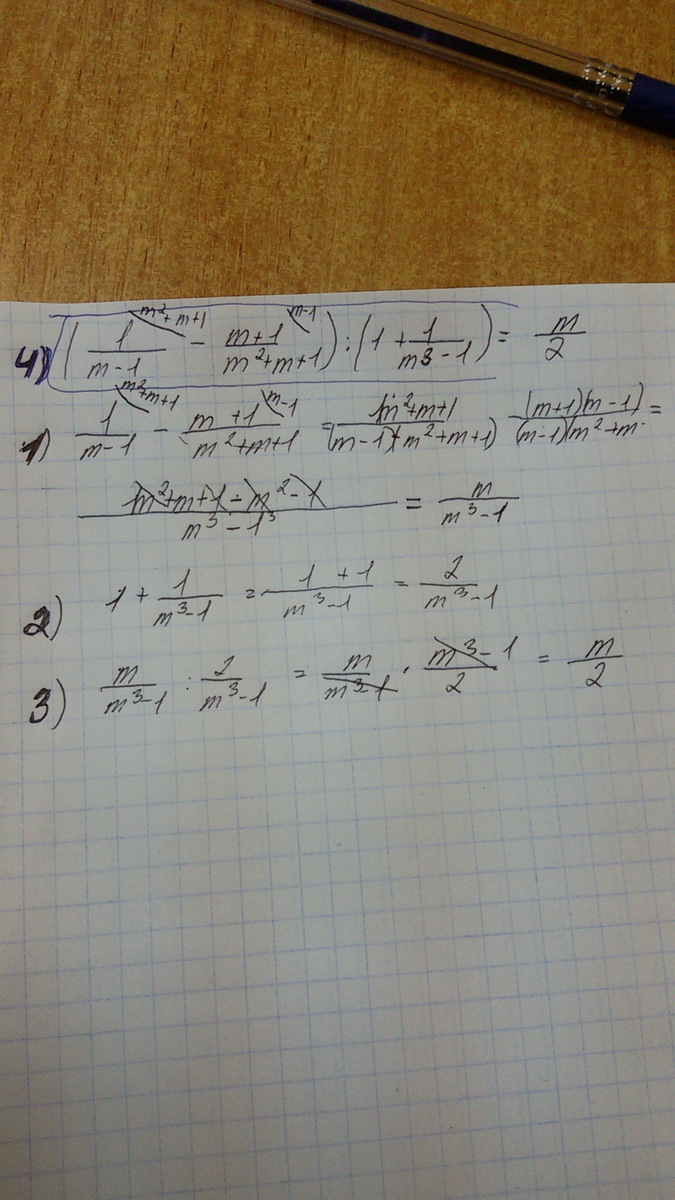 4) (1/(m-1) [m²+m+1] - (m+1)/(m²+m+1) [m-1]) : (1 + 1/(m³-1)) = m/2
1) 1/(m-1) [m²+m+1] - (m+1)/(m²+m+1) [m-1] = (m²+m+1)/((m-1)(m²+m+1)) (m+1)(m-1)/((m-1)(m²+m- =
(m²+m+1-m²-1)/(m³-1³) = m/(m³-1)
2) 1 + 1/(m³-1) = (1+1)/(m³-1) = 2/(m³-1)
3) m/(m³-1) : 2/(m³-1) = m/(m³-1) · (m³-1)/2 = m/2